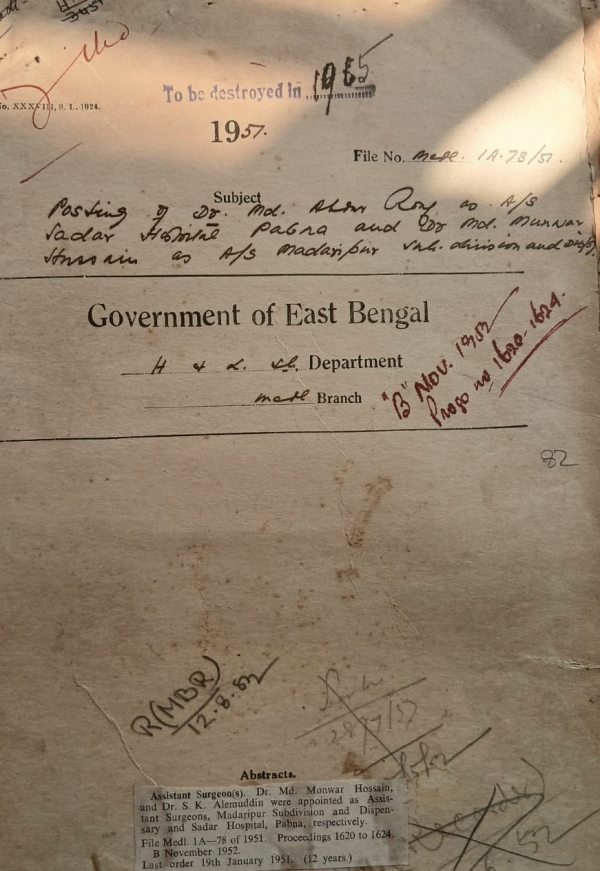 No. XXXVIII, S. I., 1924.
To be destroyed in 1965
1951.
File No. Medl. 1A-78/51.
Subject
Posting of Dr. Md. Abdur as A/S
Sadar Hospital Pabna and Dr Md. Munwar
Hussain as A/S Madaripur Sub-division and Disp.
Government of East Bengal
H & L. S. Department
Medl Branch
"B" Nov. 1952
Progs no 1620-1624.
82
R(MBR)
12.8.52
28/7/52
Abstracts.
Assistant Surgeon(s). Dr. Md. Monwar Hossain,
and Dr. S. K. Alemuddin were appointed as Assis-
tant Surgeons, Madaripur Subdivision and Dispen-
sary and Sadar Hospital, Pabna, respectively.
File Medl. 1A—78 of 1951. Proceedings 1620 to 1624.
B November 1952.
Last order 19th January 1951. (12 years.)